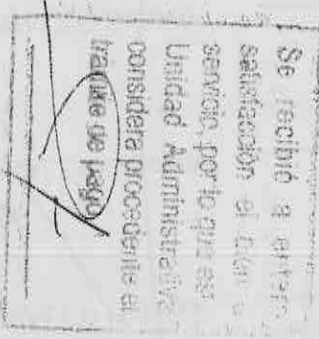 Se recibió a entera
satisfacción el
servicio, por lo que esa
Unidad Administrativa
considera procedente el
tramite de pago